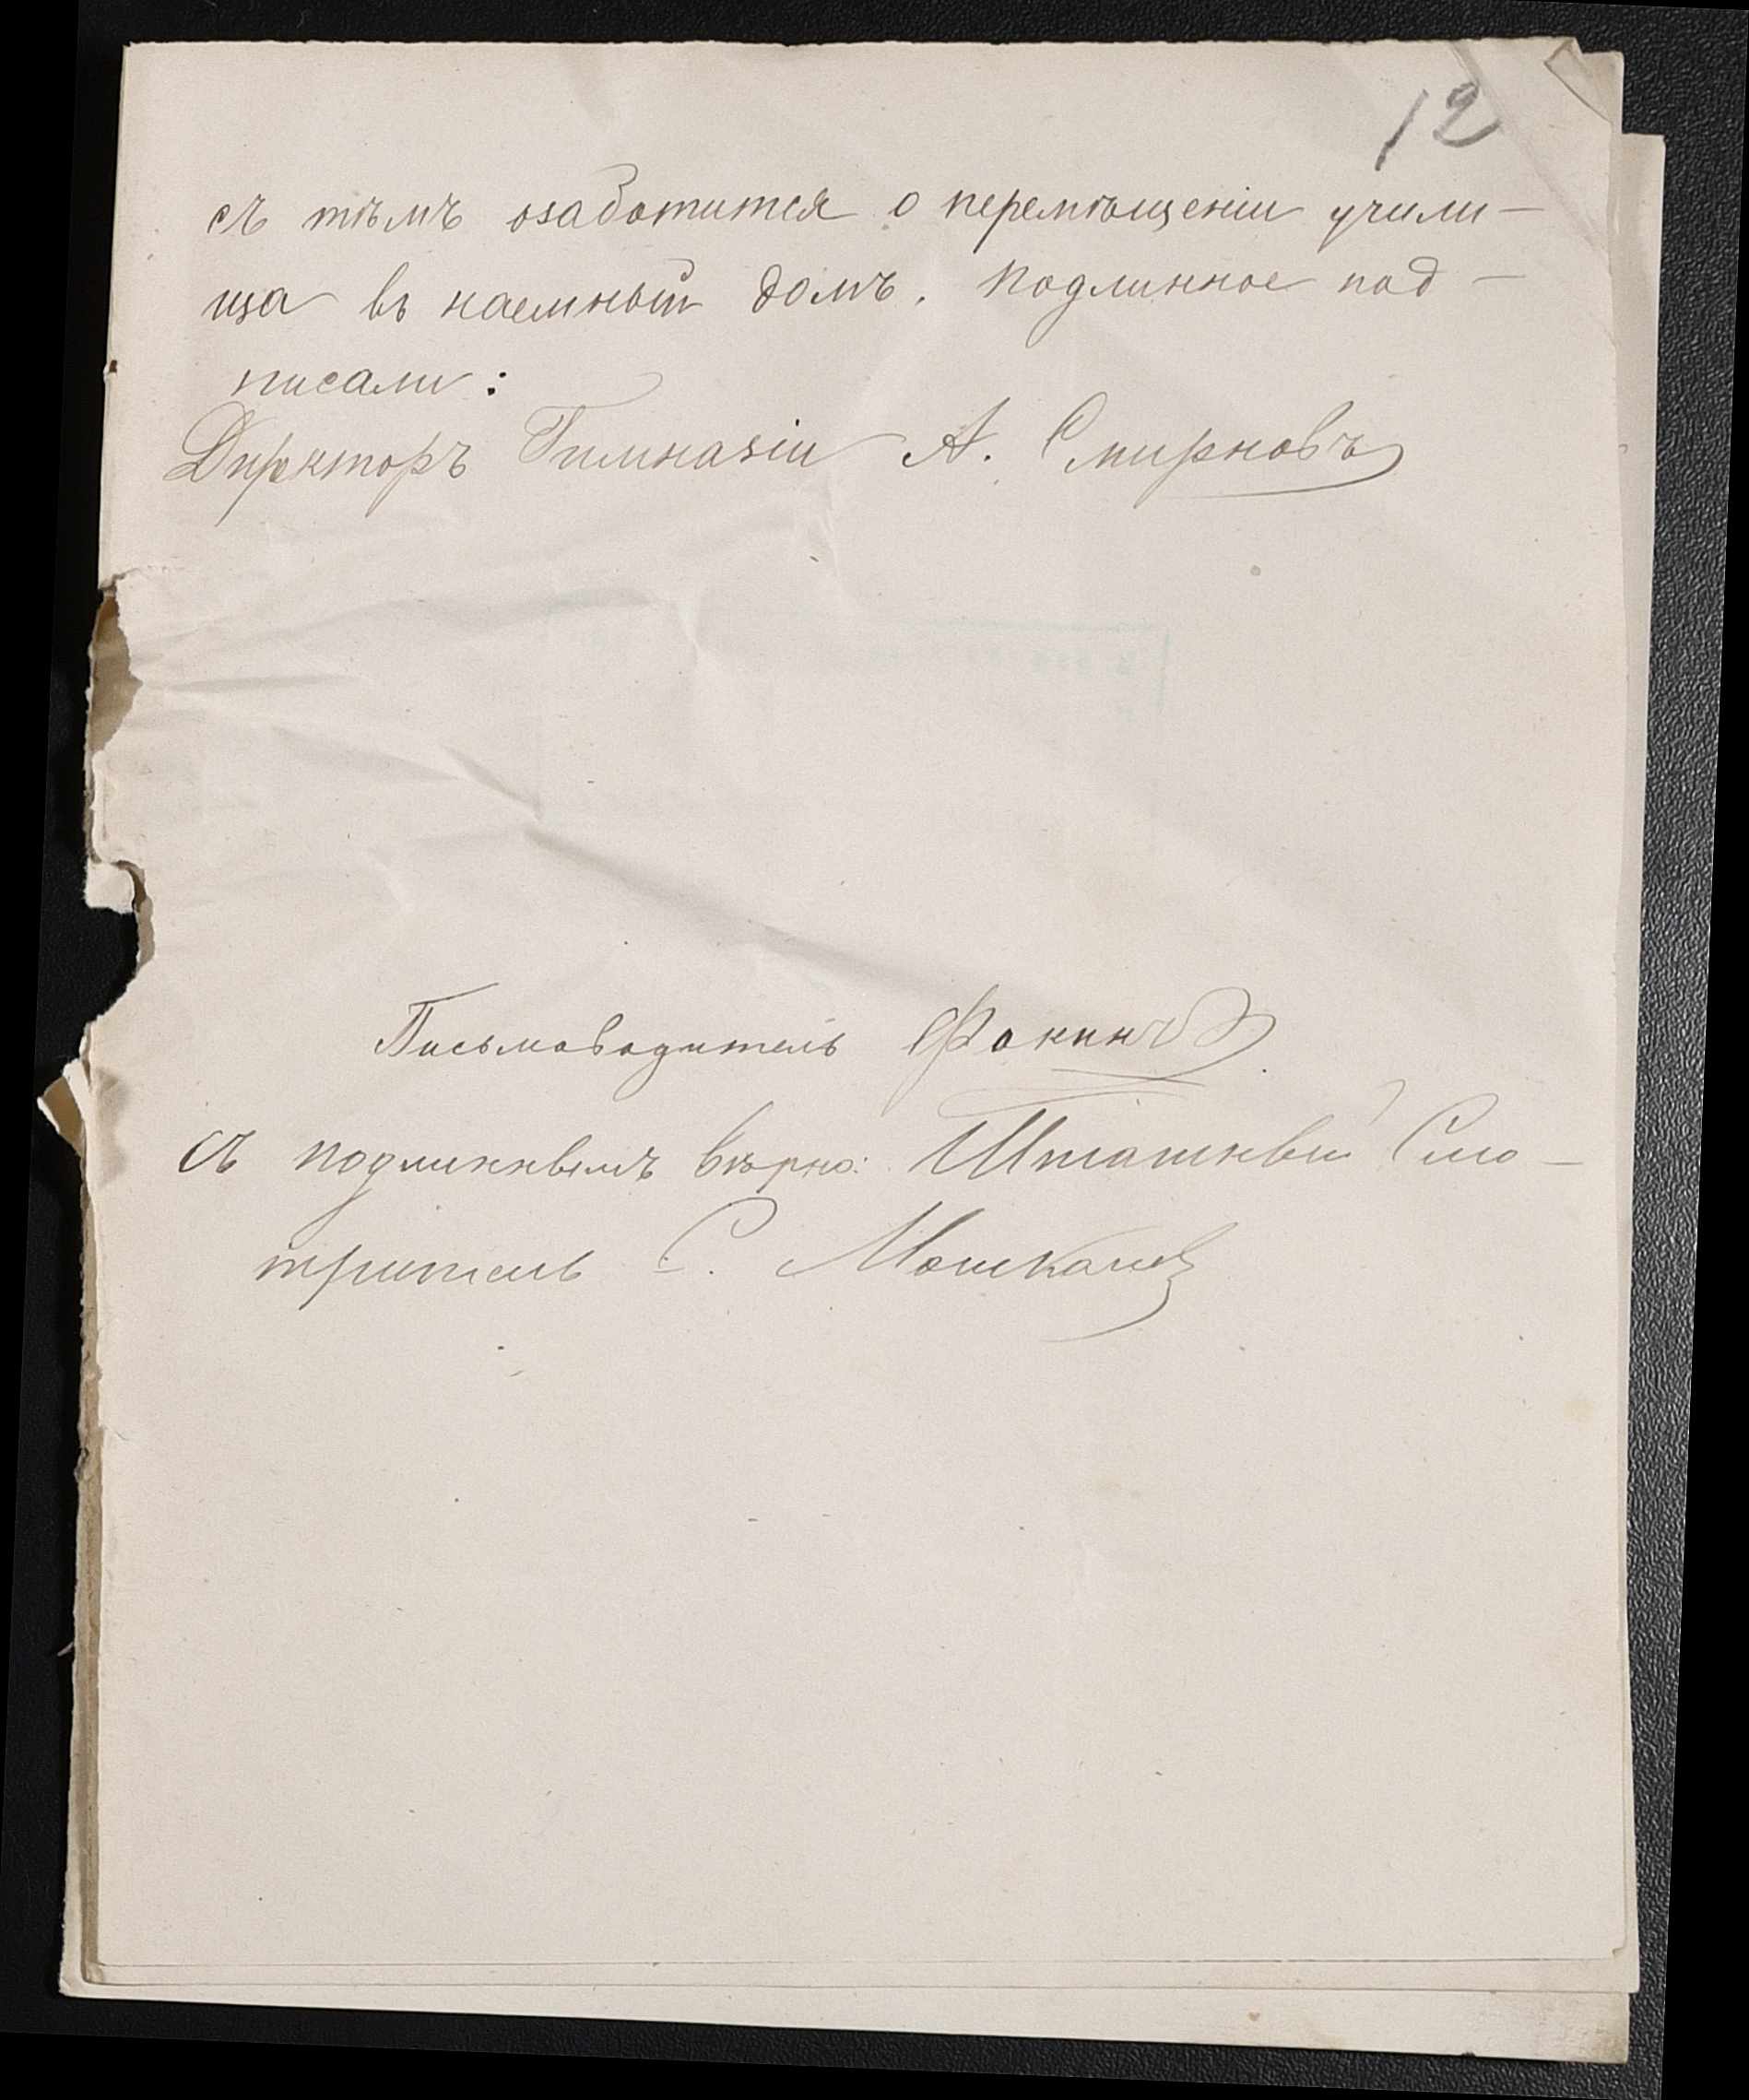 12
съ тѣмъ озаботится о перемѣщеніи учили-
ща въ наемный домъ. Подлинное под-
писали:
Директоръ Гимназіи А. Смирновъ
Письмоводитель Фокинъ
Съ подлиннымъ вѣрно: Штатный Смо-
тритель С.